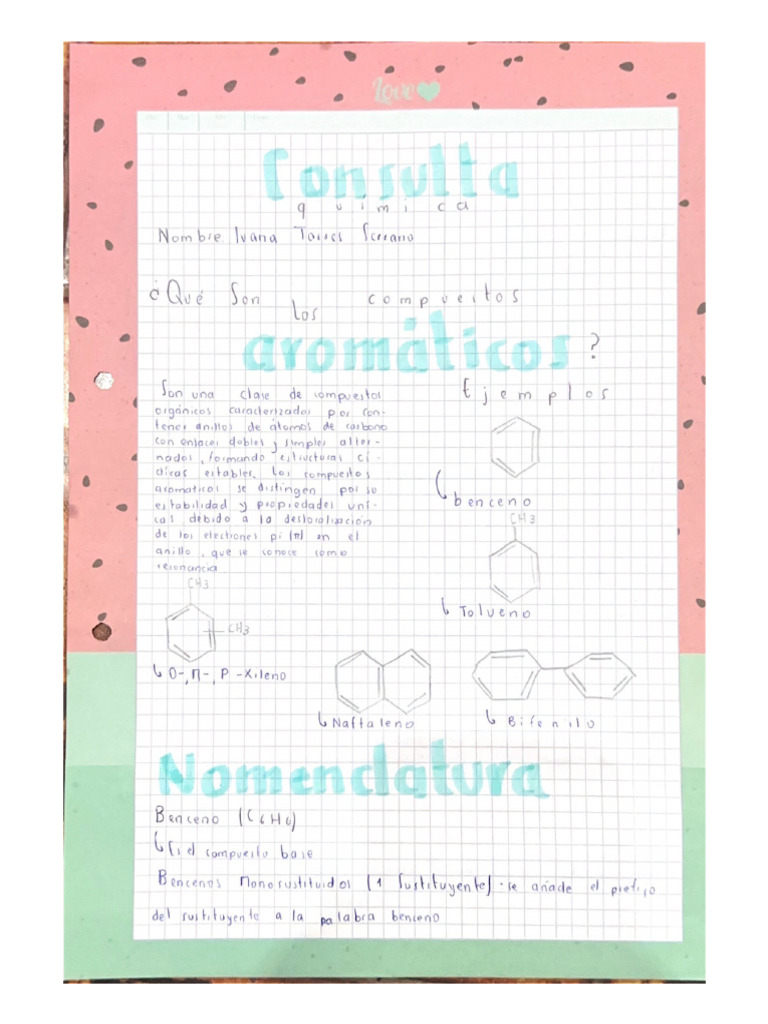 Love
Consulta
química
Nombre Ivana Torres Serrano
¿Qué Son los compuestos
aromáticos?
Son una clase de compuestos
orgánicos caracterizados por con-
tener anillos de átomos de carbono
con enlaces dobles y simples alter-
nados, formando estructuras cí-
clicas estables. Los compuestos
aromaticos se distingen por su
estabilidad y propiedades uni-
cas debido a la deslocalización
de los electrones pi (π) en el
anillo, que se conoce como
resonancia.
Ejemplos
benceno
CH3
Tolueno
CH3
CH3
O-, M-, P-Xileno
Naftaleno
Bifenilo
Nomenclatura
Benceno (C6H6)
Es el compuesto base
Bencenos Monosustituidos (1 Sustituyente) · se añade el prefijo
del sustituyente a la palabra benceno